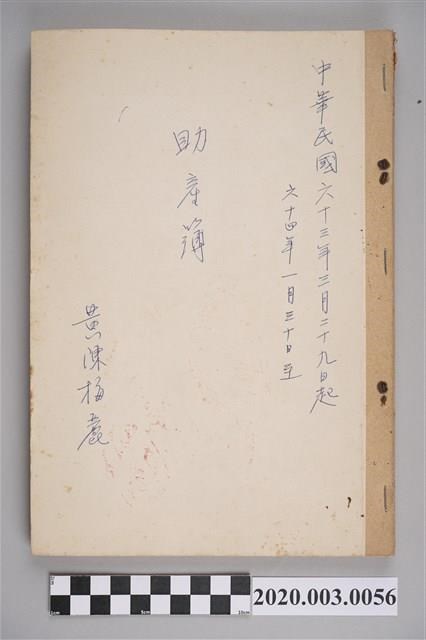 中華民國六十三年三月二十九日起
六十四年一月三十日至
助產簿
黃陳梅麗
2020.003.0056
1cm 5cm 10cm